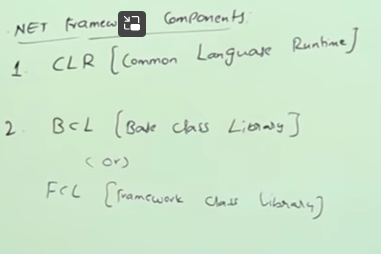 .NET Framew Components:
1. CLR [Common Language Runtime]
2. BCL [Base Class Library]
(or)
FCL [Framework Class Library]